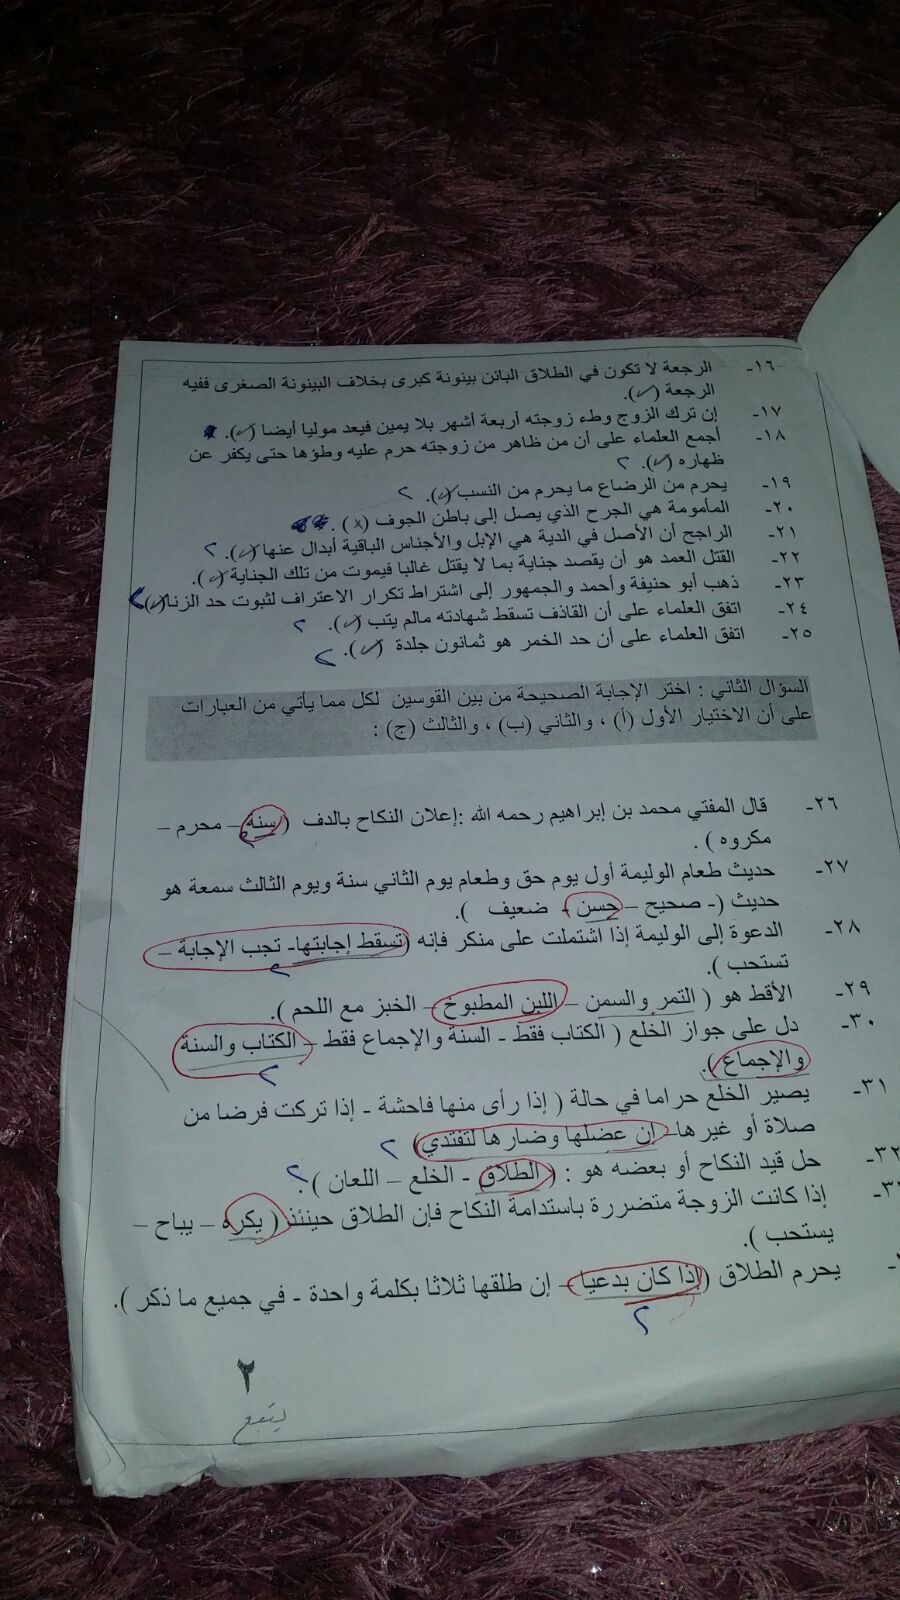 ١٦- الرجعة لا تكون في الطلاق البائن بينونة كبرى بخلاف البينونة الصغرى ففيه
الرجعة (✓).
١٧- إن ترك الزوج وطء زوجته أربعة أشهر بلا يمين فيعد موليا أيضا (✓).
١٨- أجمع العلماء على أن من ظاهر من زوجته حرم عليه وطؤها حتى يكفر عن
ظهاره (✓). ٢
١٩- يحرم من الرضاع ما يحرم من النسب (✓). ٢
٢٠- المأمومة هي الجرح الذي يصل إلى باطن الجوف (x).
٢١- الراجح أن الأصل في الدية هي الإبل والأجناس الباقية أبدال عنها (✓). ٢
٢٢- القتل العمد هو أن يقصد جناية بما لا يقتل غالبا فيموت من تلك الجناية (✓).
٢٣- ذهب أبو حنيفة وأحمد والجمهور إلى اشتراط تكرار الاعتراف لثبوت حد الزنا (✓) ٢
٢٤- اتفق العلماء على أن القاذف تسقط شهادته مالم يتب (✓). ٢
٢٥- اتفق العلماء على أن حد الخمر هو ثمانون جلدة (✓). ٢
السؤال الثاني : اختر الإجابة الصحيحة من بين القوسين لكل مما يأتي من العبارات
على أن الاختيار الأول (أ) ، والثاني (ب) ، والثالث (ج) :
٢٦- قال المفتي محمد بن إبراهيم رحمه الله :إعلان النكاح بالدف ( سنة – محرم –
مكروه ) .
٢٧- حديث طعام الوليمة أول يوم حق وطعام يوم الثاني سنة ويوم الثالث سمعة هو
حديث (- صحيح – حسن - ضعيف ).
٢٨- الدعوة إلى الوليمة إذا اشتملت على منكر فإنه (تسقط إجابتها- تجب الإجابة –
تستحب ). ٢
٢٩- الأقط هو ( التمر والسمن – اللبن المطبوخ – الخبز مع اللحم ).
٣٠- دل على جواز الخلع ( الكتاب فقط - السنة والإجماع فقط – الكتاب والسنة
والإجماع ). ٢
٣١- يصير الخلع حراما في حالة ( إذا رأى منها فاحشة - إذا تركت فرضا من
صلاة أو غيرها– إن عضلها وضارها لتفتدي) ٢
٣٢- حل قيد النكاح أو بعضه هو : ( الطلاق - الخلع – اللعان ). ٢
إذا كانت الزوجة متضررة باستدامة النكاح فإن الطلاق حينئذ ( يكره – يباح –
يستحب ).
يحرم الطلاق (إذا كان بدعيا – إن طلقها ثلاثا بكلمة واحدة - في جميع ما ذكر ).
٢
٢
يتبع